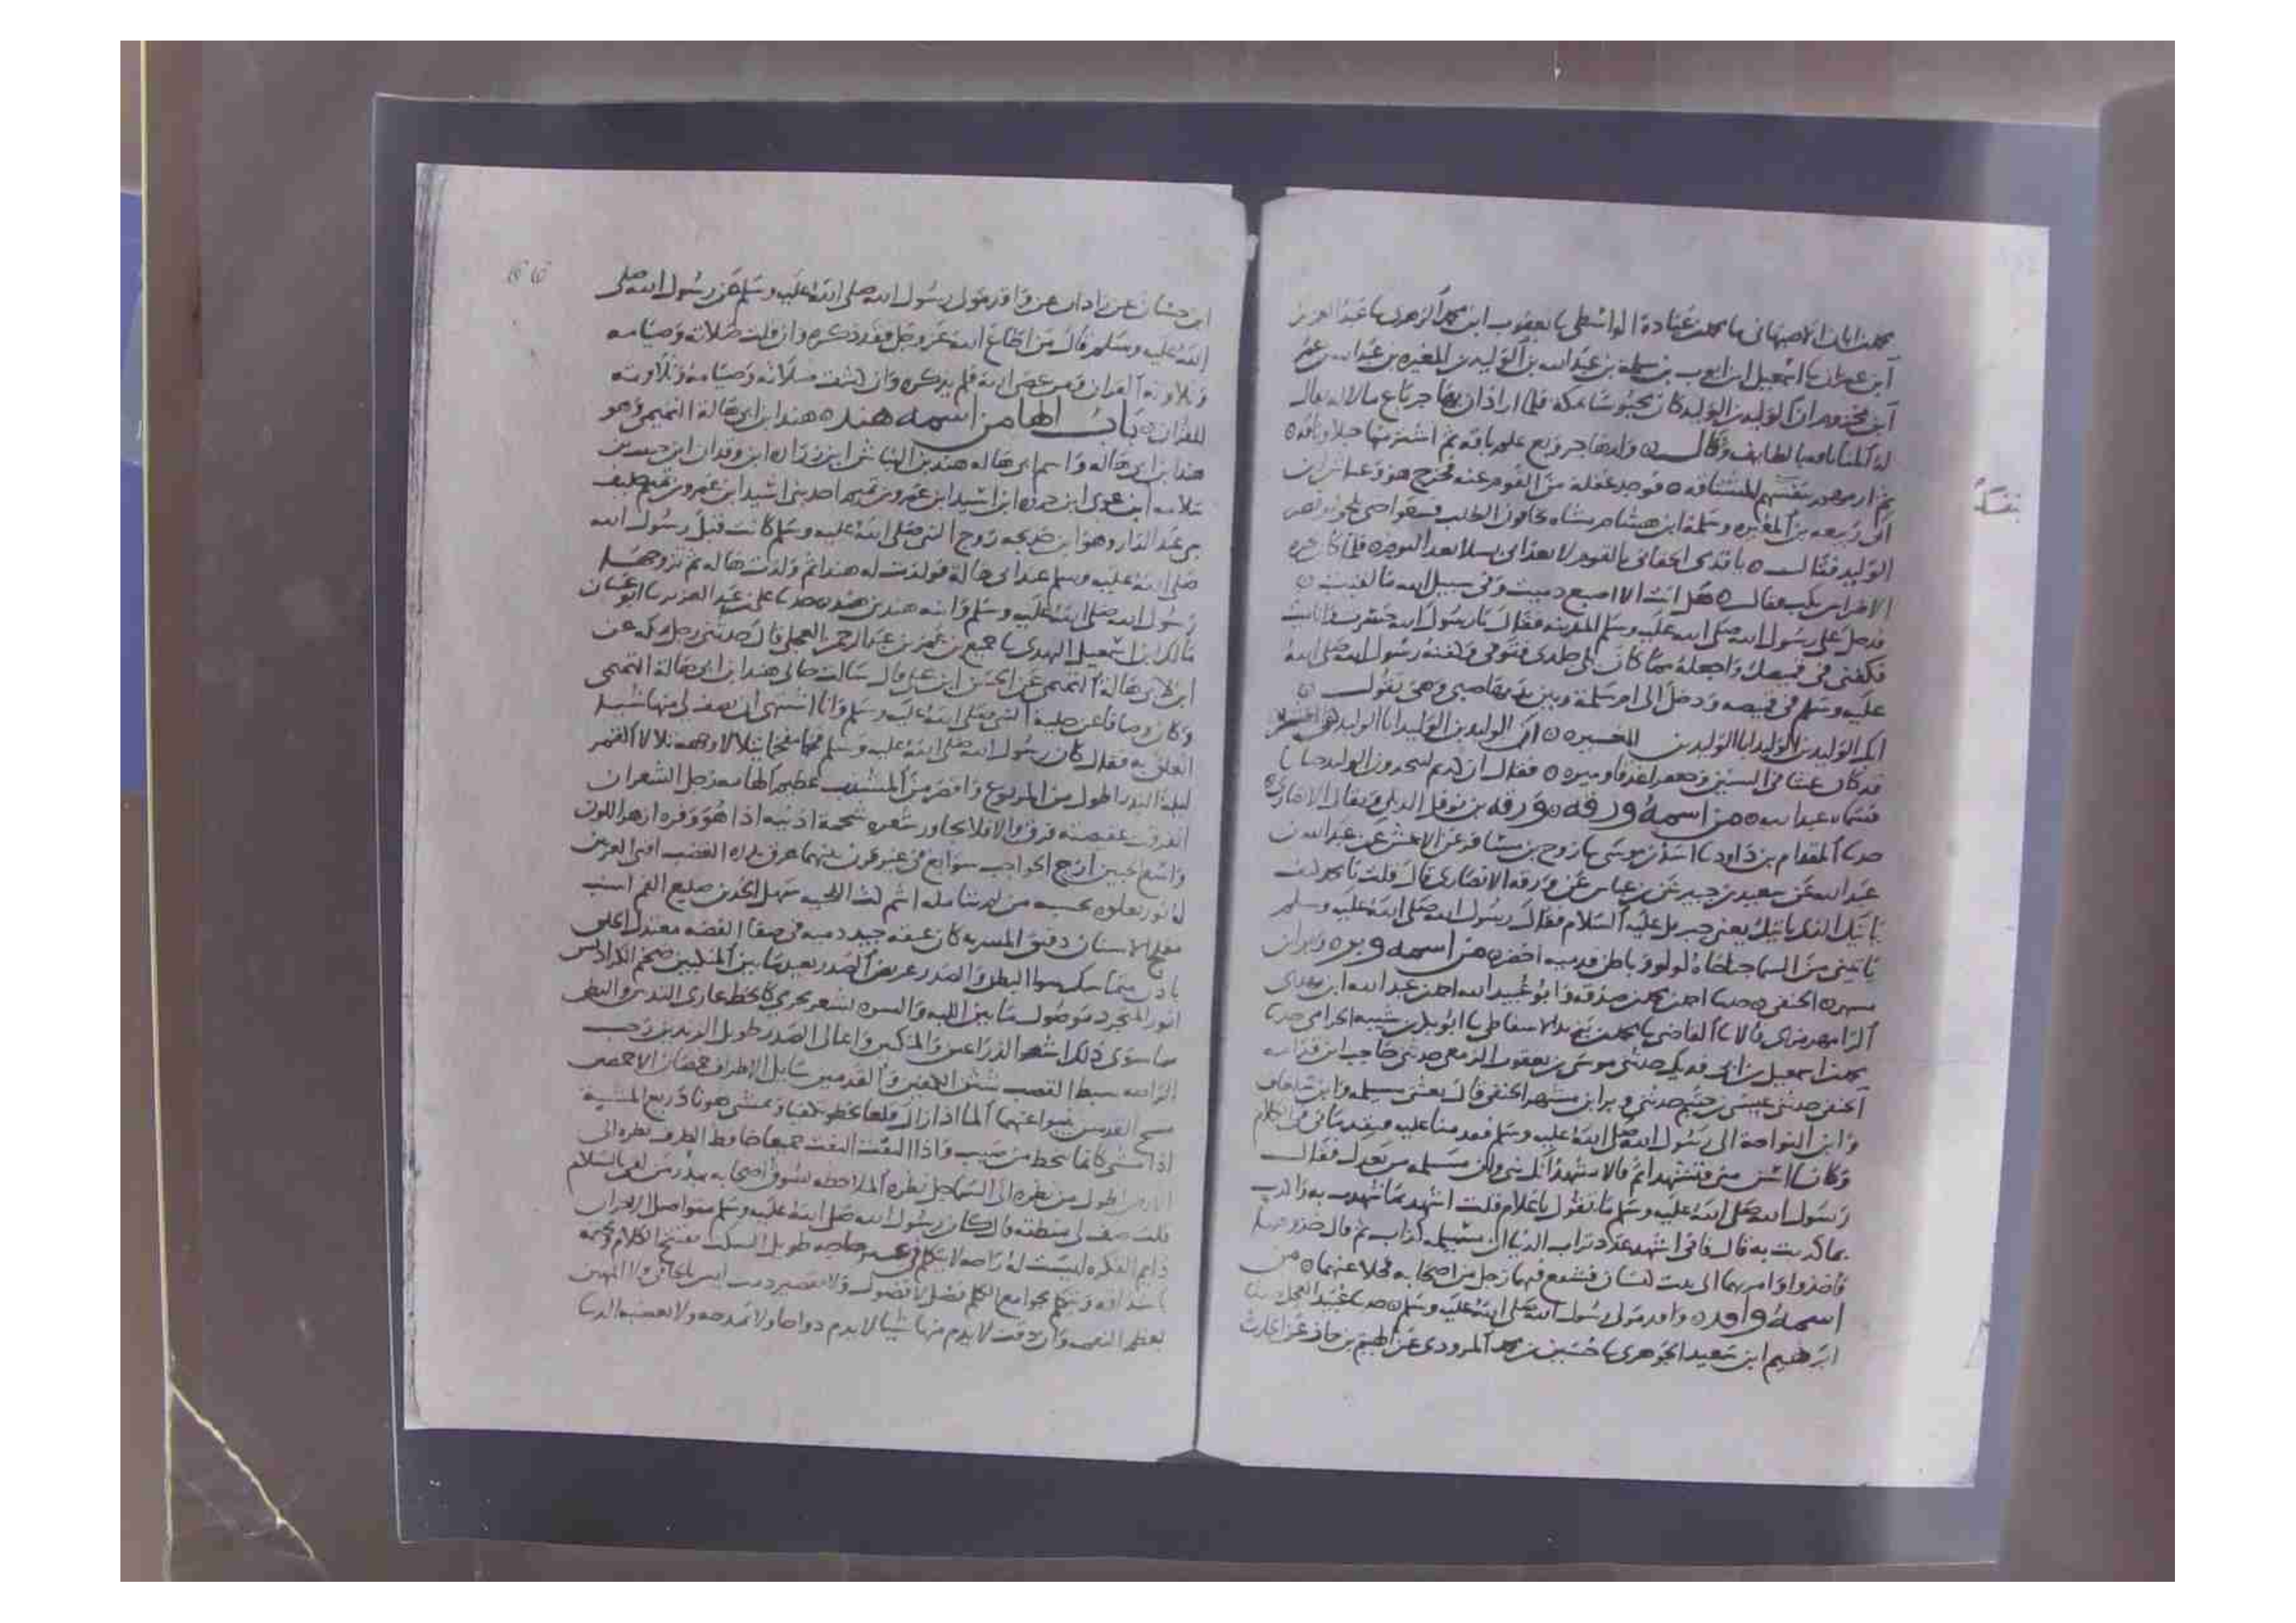 محمد بن ابان الاصبهاني ما محمد بن عبادة الواسطي ما يعقوب ابن محمد الزهري ما عبد العزيز
ابن عمران ما اسمعيل ابن ايوب بن سلمة بن عبد الله بن الوليد بن المغيره بن عبد الله بن عمر
ابن مخزوم ان الوليد بن الوليد كان محبوسا بمكه فلما اراد ان يهاجر باع ما لا له يقال
له بالطايف وقال
ثم
ابي ربيعه بن المغيره وسلمة ابن هشام
الوليد فقال
هل انت الا اصبع دميت وفي سبيل الله ما لقيت
فدخل على رسول الله صلى الله عليه وسلم المدينه فقال يا رسول الله
فكفني في قميصك واجعله مما كان يلي جلدي فتوفي وكفنه رسول الله صلى الله
عليه وسلم في قميصه ودخل الى ام سلمة وبين يديها صبي وهي تقول
ابك الوليد بن الوليد ابا الوليد بن المغيره
قد كان غيثا في السنين وجعفرا غدقا وميره فقال ان كدتم لتتخذون الوليد حنانا
فسماه عبد الله من اسمه ورقه ورقه بن نوفل الديلي ويقال الانصاري
حدثنا المقدام بن داود ما اسد بن موسى ما روح بن مسافر عن الاعمش عن عبد الله بن
عبد الله عن سعيد بن جبير عن بن عباس عن ورقه الانصاري قال قلت يا محمد كيف
ياتيك الذي ياتيك يعني جبريل عليه السلام فقال رسول الله صلى الله عليه وسلم
ياتيني من السما جناحاه لولو وباطن قدميه اخضر من اسمه وبره وبر ابن
مسهر الحنفي حدثنا احمد بن محمد بن صدقه وابو عبيد الله احمد بن عبد الله ابن مهدي
الرامهرمزي قالا ما القاضي ما محمد بن يزيد الاسفاطي ما ابو بكر بن شيبه الحزامي حدثنا
محمد بن اسمعيل بن ابي فديك حدثني موسى بن يعقوب الزمعي حدثني حاجب ابن قدامه
الحنفي حدثني عيسى بن خثيم حدثني وبر ابن مشهر الحنفي قال بعثني مسيلمه وابن شغاف
وابن النواحه الى رسول الله صلى الله عليه وسلم فقدمنا عليه
وكانا اسن مني فتشهدا ثم قالا نشهد انك نبي وان مسيلمه من بعدك فقال
رسول الله صلى الله عليه وسلم ما تقول يا غلام قلت اشهد بما شهدت به واكذب
بما كذبت به قال فاني اشهد عدد تراب الدنيا ان مسيلمه كذاب ثم قال خذوهما
فاخذوا وامر بهما الى بيت كيسان فشفع فيهما رجل من اصحابه فخلا عنهما من
اسمه واقد واقد مولى رسول الله صلى الله عليه وسلم
ابرهيم ابن سعيد الجوهري ما حسين بن محمد المروذي عن الهيثم بن حماد عن الحارث
66
ابن غسان عن زاذان عن واقد مولى رسول الله صلى الله عليه وسلم عن رسول الله صلى
الله عليه وسلم قال من اطاع الله عز وجل فقد ذكره وان قلت صلاته وصيامه
وتلاوته القران ومن عصى الله فلم يذكره وان كثرت صلاته وصيامه وتلاوته
للقران باب الها من اسمه هند هند ابن ابي هالة التميمي وهو
هند ابن ابي هاله واسم ابي هاله هند بن النباش ابن زراره ابن وقدان ابن حبيب بن
سلامه ابن عدي ابن جروه ابن اسيد ابن عمرو بن تميم احد بني اسيد ابن عمرو بن تميم حليف
بني عبد الدار وهو ابن خديجه زوج النبي صلى الله عليه وسلم كانت قبل رسول الله
صلى الله عليه وسلم عند ابي هالة فولدت له هند ثم ولدت هاله ثم تزوجها
رسول الله صلى الله عليه وسلم وابنه هند بن هند حدثنا علي بن عبد العزيز ما ابو غسان
مالك ابن اسمعيل النهدي ما جميع بن عمر بن عبد الرحمن العجلي قال حدثني رجل بمكه عن
ابن لابي هالة التميمي عن الحسن ابن علي قال سالت خالي هند ابن ابي هالة التميمي
وكان وصافا عن حلية النبي صلى الله عليه وسلم وانا اشتهي ان يصف لي منها شيا
اتعلق به فقال كان رسول الله صلى الله عليه وسلم فخما مفخما يتلالا وجهه تلالا القمر
ليلة البدر اطول من المربوع واقصر من المشذب عظيم الهامه رجل الشعر ان
انفرقت عقيصته فرق والا فلا يجاوز شعره شحمة اذنيه اذا هو وفره ازهر اللون
واسع الجبين ازج الحواجب سوابغ في غير قرن بينهما عرق يدره الغضب اقنى العرنين
له نور يعلوه يحسبه من لم يتامله اشم كث اللحيه سهل الخدين ضليع الفم اشنب
مفلج الاسنان دقيق المسربه كان عنقه جيد دميه في صفا الفضه معتدل الخلق
بادن متماسك سوا البطن والصدر عريض الصدر بعيد ما بين المنكبين ضخم الكراديس
انور المتجرد موصول ما بين اللبه والسره بشعر يجري كالخط عاري الثديين والبطن
مما سوى ذلك اشعر الذراعين والمنكبين واعالي الصدر طويل الزندين رحب
الراحه سبط القصب شثن الكفين والقدمين سايل الاطراف خمصان الاخمصين
مسيح القدمين ينبو عنهما الما اذا زال زال قلعا يخطو تكفيا ويمشي هونا ذريع المشية
اذا مشى كانما ينحط من صبب واذا التفت التفت جميعا خافض الطرف نظره الى
الارض اطول من نظره الى السما جل نظره الملاحظه يسوق اصحابه يبدر من لقي بالسلام
قلت صف لي منطقه قال كان رسول الله صلى الله عليه وسلم متواصل الاحزان
دايم الفكره ليست له راحه لا يتكلم في غير حاجه طويل السكت يفتتح الكلام ويختمه
باشداقه ويتكلم بجوامع الكلم فضل لا فضول ولا تقصير دمث ليس بالجافي ولا المهين
يعظم النعمه وان دقت لا يذم منها شيا لا يذم ذواقا ولا يمدحه ولا تغضبه الدنيا